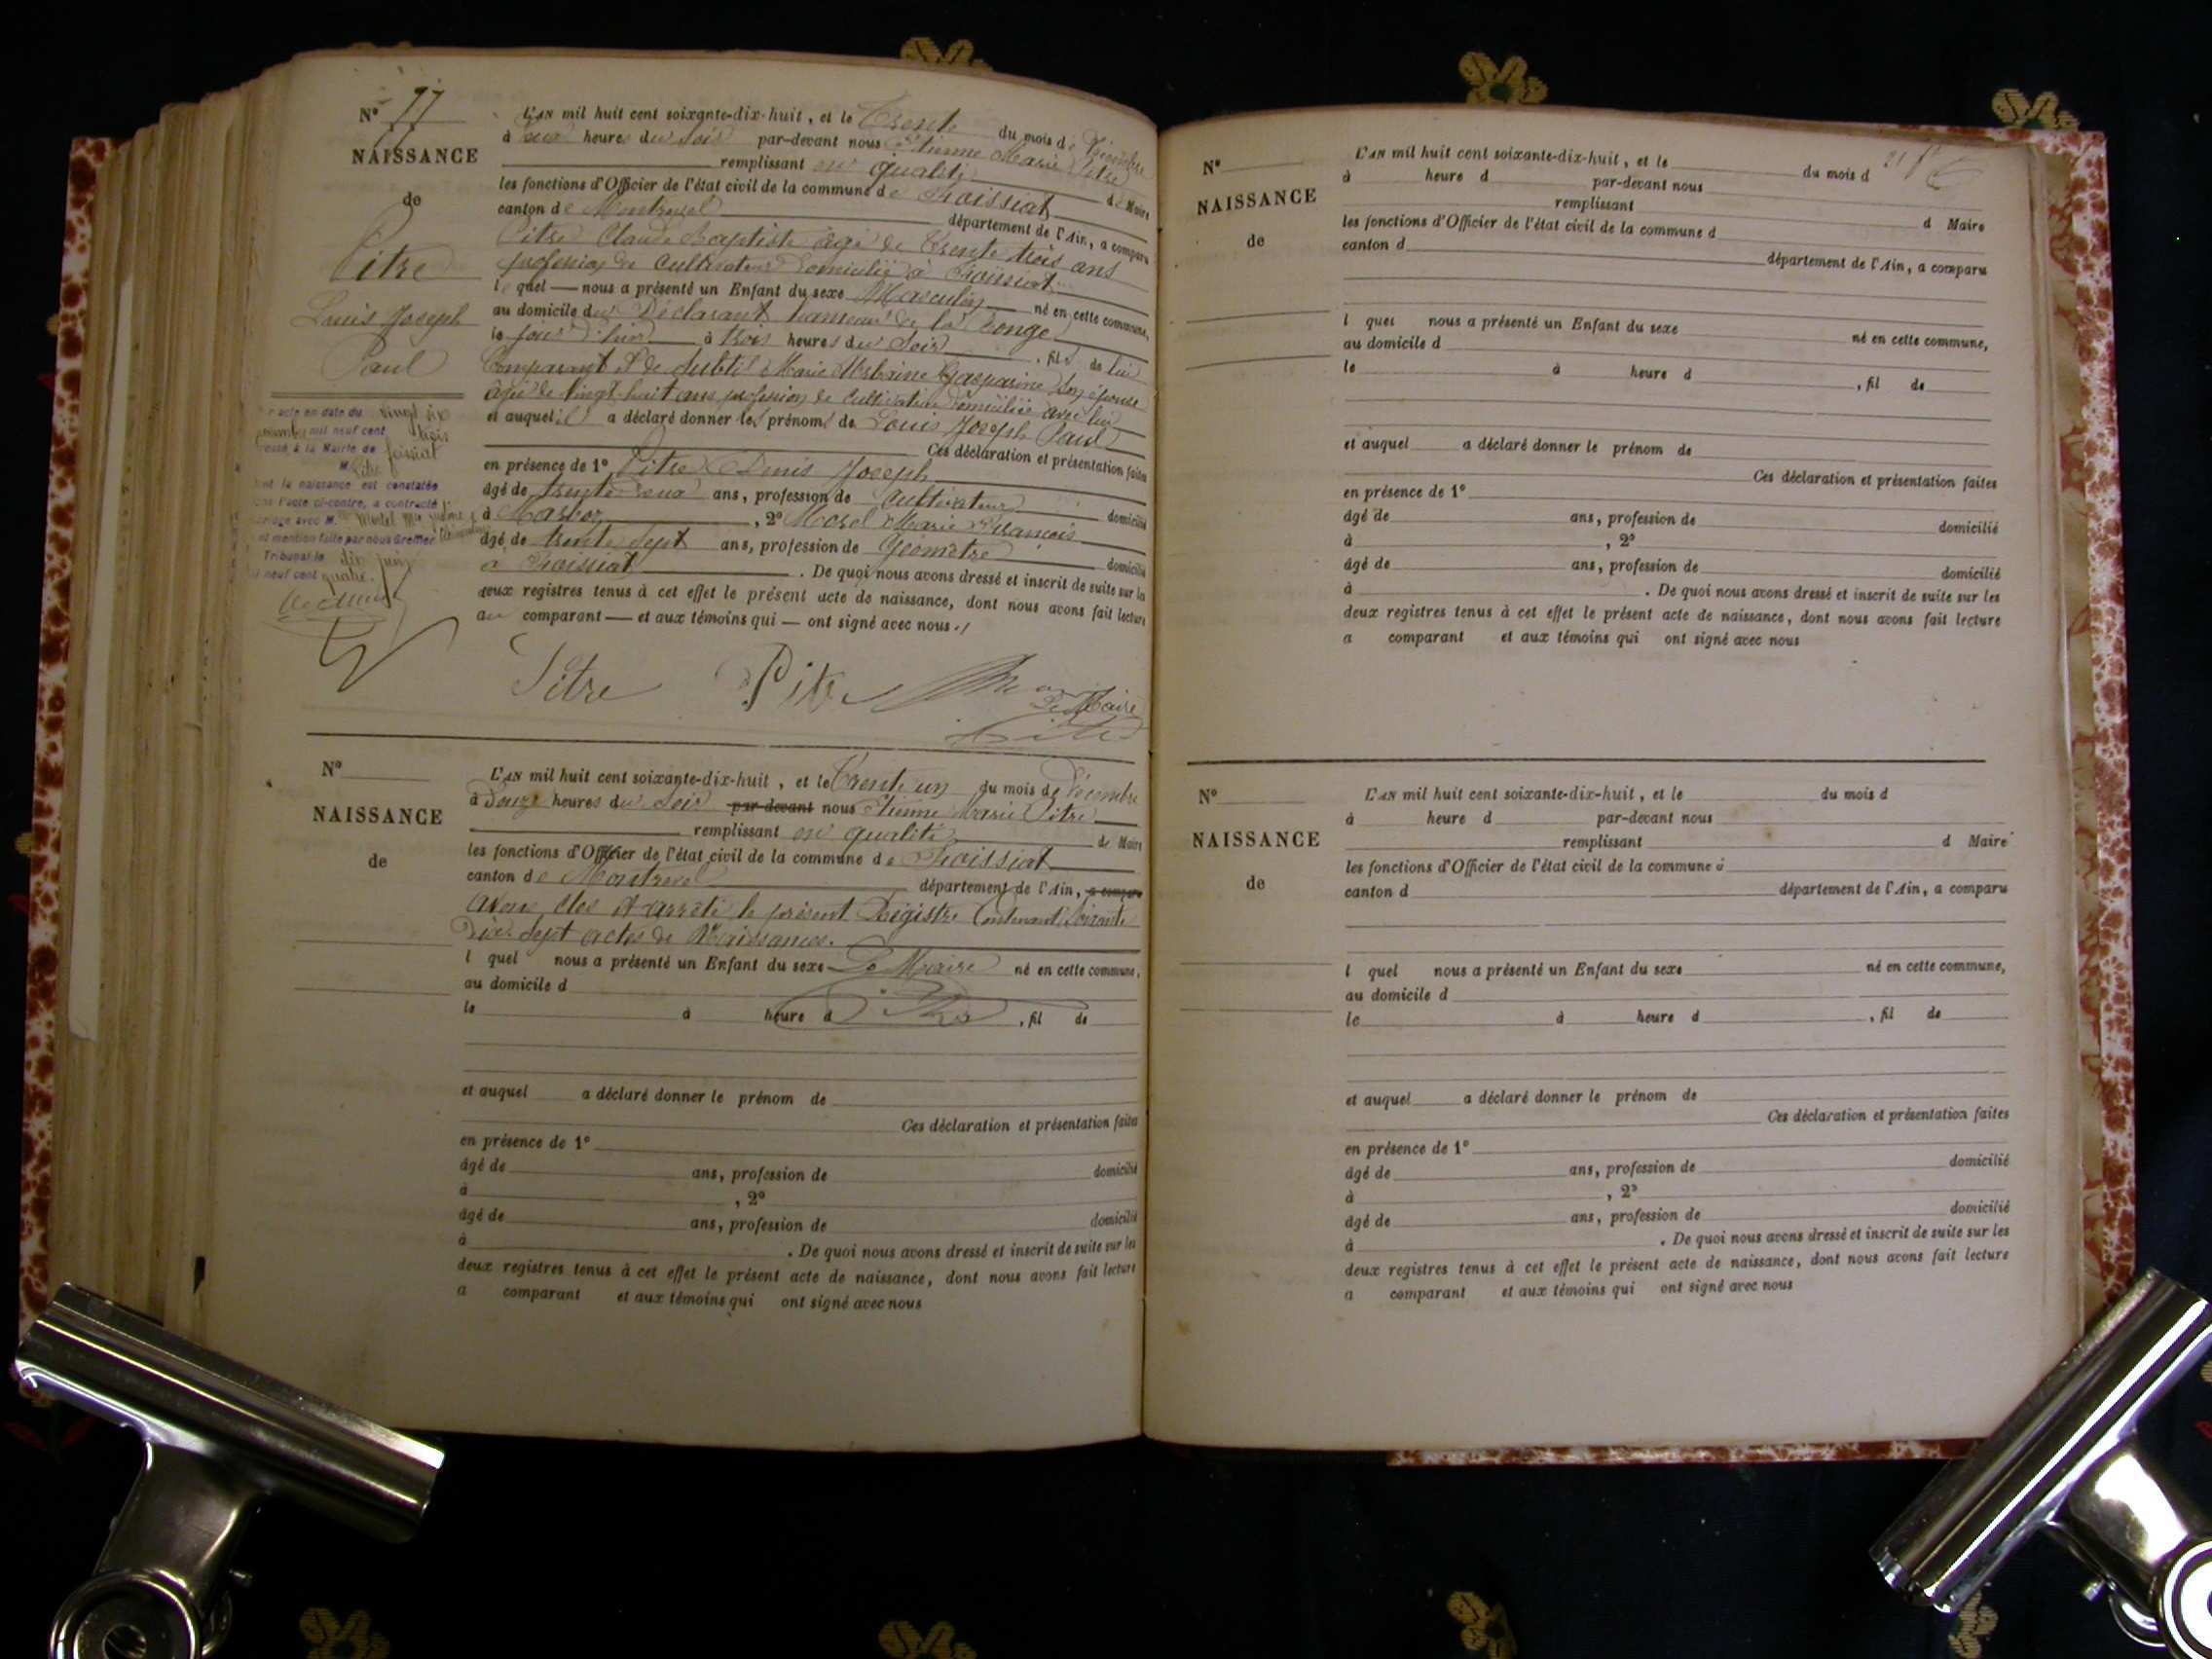 N° 77
NAISSANCE
de
Pitre
Louis Joseph
Paul
L'AN mil huit cent soixante-dix-huit, et le Trente du mois de Décembre
à heures du soir par-devant nous Etienne Marie Pitre
remplissant en qualité de Maire
les fonctions d'Officier de l'état civil de la commune de Foissiat
canton de Montrevel département de l'Ain, a comparu
Pitre Claude Baptiste âgé de Trente trois ans
profession de Cultivateur domicilié à Foissiat
lequel — nous a présenté un Enfant du sexe Masculin né en cette commune,
au domicile du Déclarant hameau de la
le jour d'hier à trois heures du Soir, fils de lui
Comparant et de Subtil Marie Gasparine Son épouse
âgée de Vingt-huit ans, profession de Cultivateur domiciliée avec lui
et auquel il a déclaré donner les prénoms de Louis Joseph Paul
Ces déclaration et présentation faites
en présence de 1° Pitre Denis Joseph
âgé de trente deux ans, profession de Cultivateur domicilié
à, 2° Morel Marie François
âgé de trente Sept ans, profession de Géomètre domicilié
à Foissiat. De quoi nous avons dressé et inscrit de suite sur les
deux registres tenus à cet effet le présent acte de naissance, dont nous avons fait lecture
au comparant — et aux témoins qui — ont signé avec nous ./
acte en date du vingt six
mil neuf cent trois
à la Mairie de foissiat
M. Pitre
la naissance est constatée
l'acte ci-contre, a contracté
avec M.
mention faite par nous Greffier
Tribunal le dix juin
neuf cent quatre.
Pitre Pitre
Le Maire
Pitre
N°
NAISSANCE
de
L'AN mil huit cent soixante-dix-huit, et le Trente un du mois de Décembre
à Douze heures du Soir par-devant nous Etienne Marie Pitre
remplissant en qualité de Maire
les fonctions d'Officier de l'état civil de la commune de Foissiat
canton de Montrevel département de l'Ain, a comparu
avons clos et arrêté le présent Registre Contenant Soixante
Dix-Sept actes de Naissances.
l quel nous a présenté un Enfant du sexe Le Maire né en cette commune,
au domicile d
le à heure d, fil de
et auquel a déclaré donner le prénom de
Ces déclaration et présentation faites
en présence de 1°
âgé de ans, profession de domicilié
à, 2°
âgé de ans, profession de domicilié
à. De quoi nous avons dressé et inscrit de suite sur les
deux registres tenus à cet effet le présent acte de naissance, dont nous avons fait lecture
a comparant et aux témoins qui ont signé avec nous
N°
NAISSANCE
de
L'AN mil huit cent soixante-dix-huit, et le du mois d
à heure d par-devant nous
remplissant
les fonctions d'Officier de l'état civil de la commune d d Maire
canton d département de l'Ain, a comparu
l quel nous a présenté un Enfant du sexe né en cette commune,
au domicile d
le à heure d, fil de
et auquel a déclaré donner le prénom de
Ces déclaration et présentation faites
en présence de 1°
âgé de ans, profession de domicilié
à, 2°
âgé de ans, profession de domicilié
à. De quoi nous avons dressé et inscrit de suite sur les
deux registres tenus à cet effet le présent acte de naissance, dont nous avons fait lecture
a comparant et aux témoins qui ont signé avec nous
N°
NAISSANCE
de
L'AN mil huit cent soixante-dix-huit, et le du mois d
à heure d par-devant nous
remplissant d Maire
les fonctions d'Officier de l'état civil de la commune d
canton d département de l'Ain, a comparu
l quel nous a présenté un Enfant du sexe né en cette commune,
au domicile d
le à heure d, fil de
et auquel a déclaré donner le prénom de
Ces déclaration et présentation faites
en présence de 1°
âgé de ans, profession de domicilié
à, 2°
âgé de ans, profession de domicilié
à. De quoi nous avons dressé et inscrit de suite sur les
deux registres tenus à cet effet le présent acte de naissance, dont nous avons fait lecture
a comparant et aux témoins qui ont signé avec nous